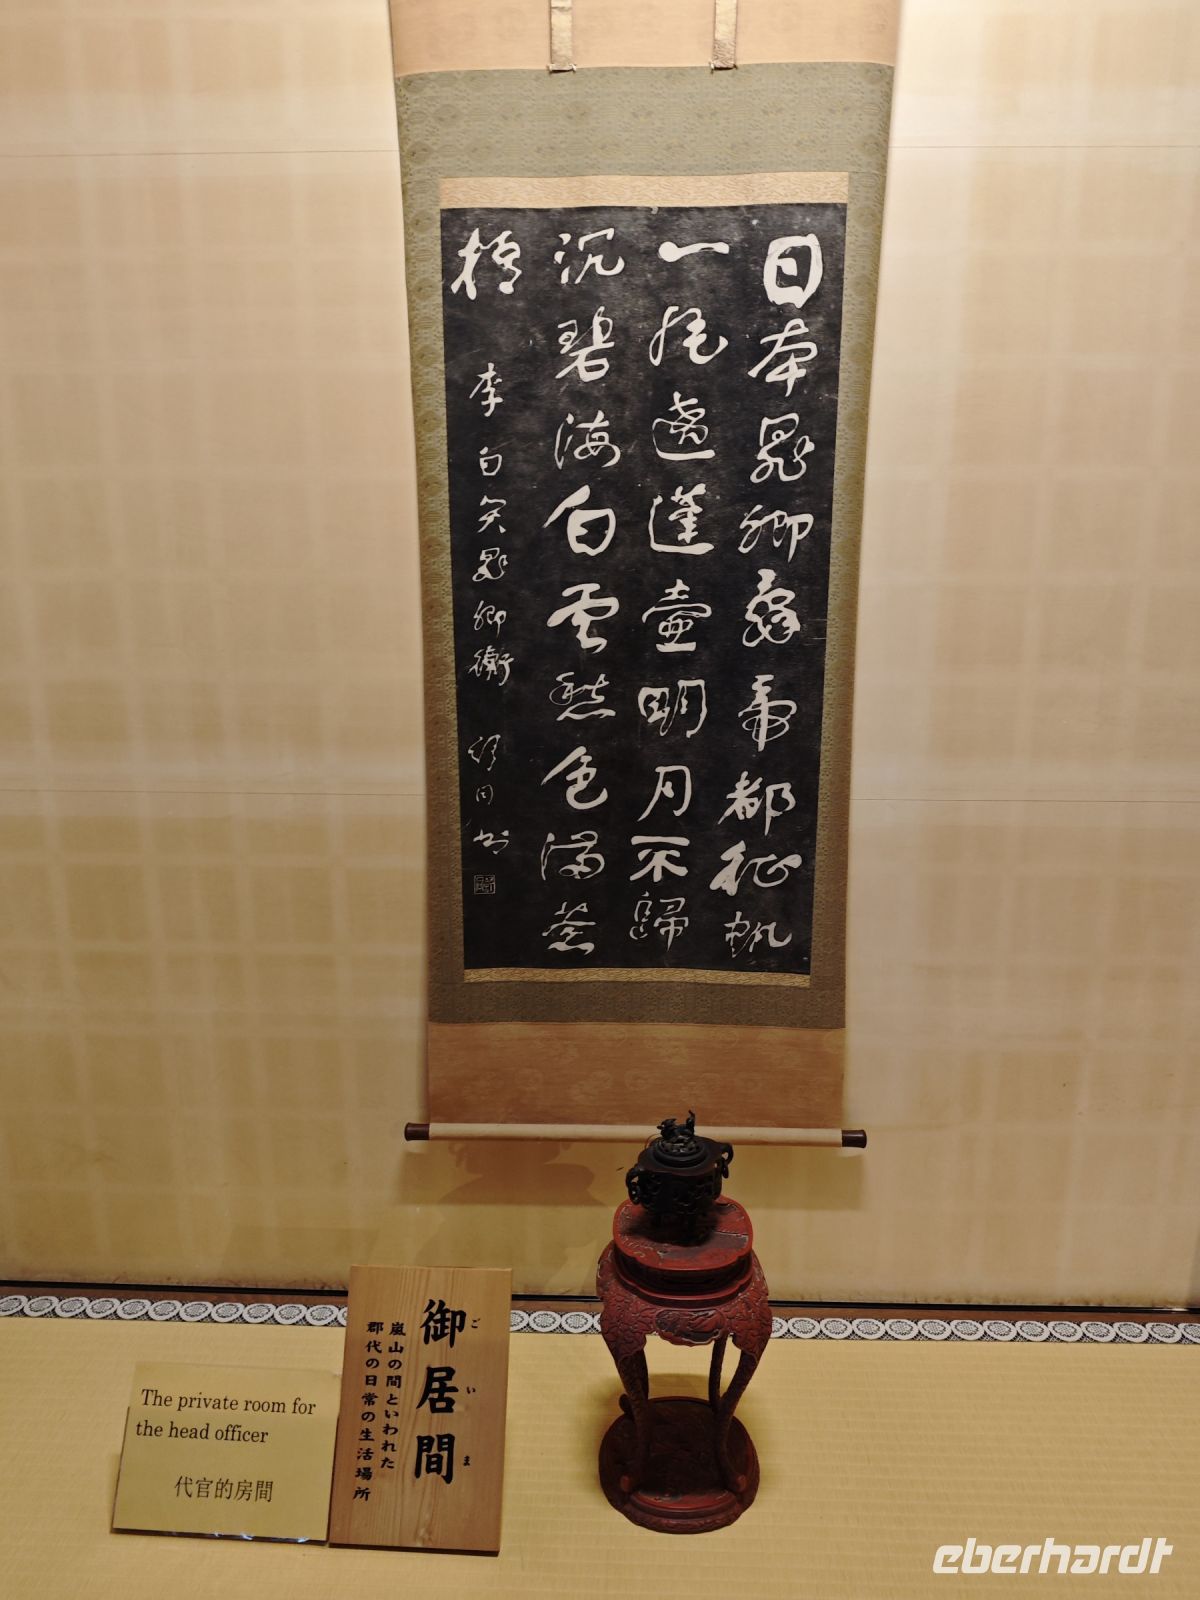 日本晁卿辭帝都征帆
一片遶蓬壺明月不歸
沉碧海白雲愁色滿蒼
梧
李白哭晁卿衡
御居間
ごいま
嵐山の間といわれた
郡代の日常の生活場所
The private room for
the head officer
代官的房間
eberhardt